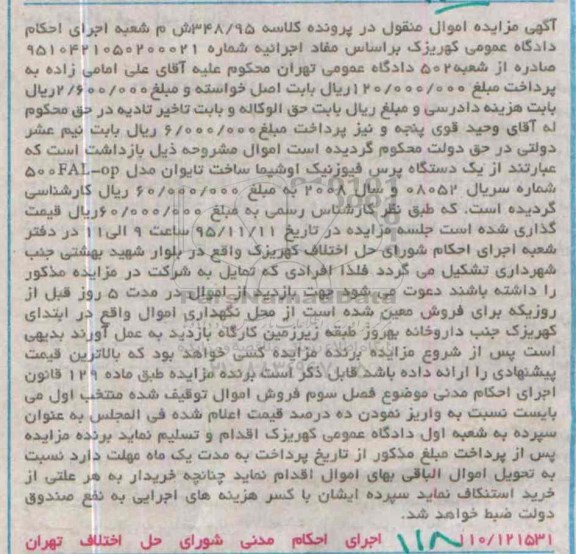 آگهی مزایده اموال منقول در پرونده کلاسه ۳۴۸/۹۵ش م شعبه اجرای احکام
دادگاه عمومی کهریزک براساس مفاد اجرائیه شماره ۹۵۱۰۴۲۱۰۵۰۲۰۰۰۲۱
صادره از شعبه۵۰۲ دادگاه عمومی تهران محکوم علیه آقای علی امامی زاده به
پرداخت مبلغ ۱۲۰/۰۰۰/۰۰۰ریال بابت اصل خواسته و مبلغ۲/۶۰۰/۰۰۰ریال
بابت هزینه دادرسی و مبلغ ریال بابت حق الوکاله و بابت تاخیر تادیه در حق محکوم
له آقای وحید قوی پنجه و نیز پرداخت مبلغ۶/۰۰۰/۰۰۰ ریال بابت نیم عشر
دولتی در حق دولت محکوم گردیده است اموال مشروحه ذیل بازداشت است که
عبارتند از یک دستگاه پرس فیوزنیک اوشیما ساخت تایوان مدل ۵۰۰FAL-op
شماره سریال ۰۸۰۵۲ و سال ۲۰۰۸ به مبلغ ۶۰/۰۰۰/۰۰۰ ریال کارشناسی
گردیده است. که طبق نظر کارشناس رسمی به مبلغ ۶۰/۰۰۰/۰۰۰ریال قیمت
گذاری شده است جلسه مزایده در تاریخ ۹۵/۱۱/۱۱ ساعت ۹ الی۱۱ در دفتر
شعبه اجرای احکام شورای حل اختلاف کهریزک واقع در بلوار شهید بهشتی جنب
شهرداری تشکیل می گردد فلذا افرادی که تمایل به شرکت در مزایده مذکور
را داشته باشند دعوت می شود جهت بازدید از اموال در مدت ۵ روز قبل از
روزیکه برای فروش معین شده است از محل نگهداری اموال واقع در ابتدای
کهریزک جنب داروخانه بهروز طبقه زیرزمین کارگاه بازدید به عمل آورند بدیهی
است پس از شروع مزایده برنده مزایده کسی خواهد بود که بالاترین قیمت
پیشنهادی را ارائه داده باشد قابل ذکر است برنده مزایده طبق ماده ۱۲۹ قانون
اجرای احکام مدنی موضوع فصل سوم فروش اموال توقیف شده منتخب اول می
بایست نسبت به واریز نمودن ده درصد قیمت اعلام شده فی المجلس به عنوان
سپرده به شعبه اول دادگاه عمومی کهریزک اقدام و تسلیم نماید برنده مزایده
پس از پرداخت مبلغ مذکور از تاریخ پرداخت به مدت یک ماه مهلت دارد نسبت
به تحویل اموال الباقی بهای اموال اقدام نماید چنانچه خریدار به هر علتی از
خرید استنکاف نماید سپرده ایشان با کسر هزینه های اجرایی به نفع صندوق
دولت ضبط خواهد شد.
۱۱۰/۱۲۱۵۳۱ اجرای احکام مدنی شورای حل اختلاف تهران